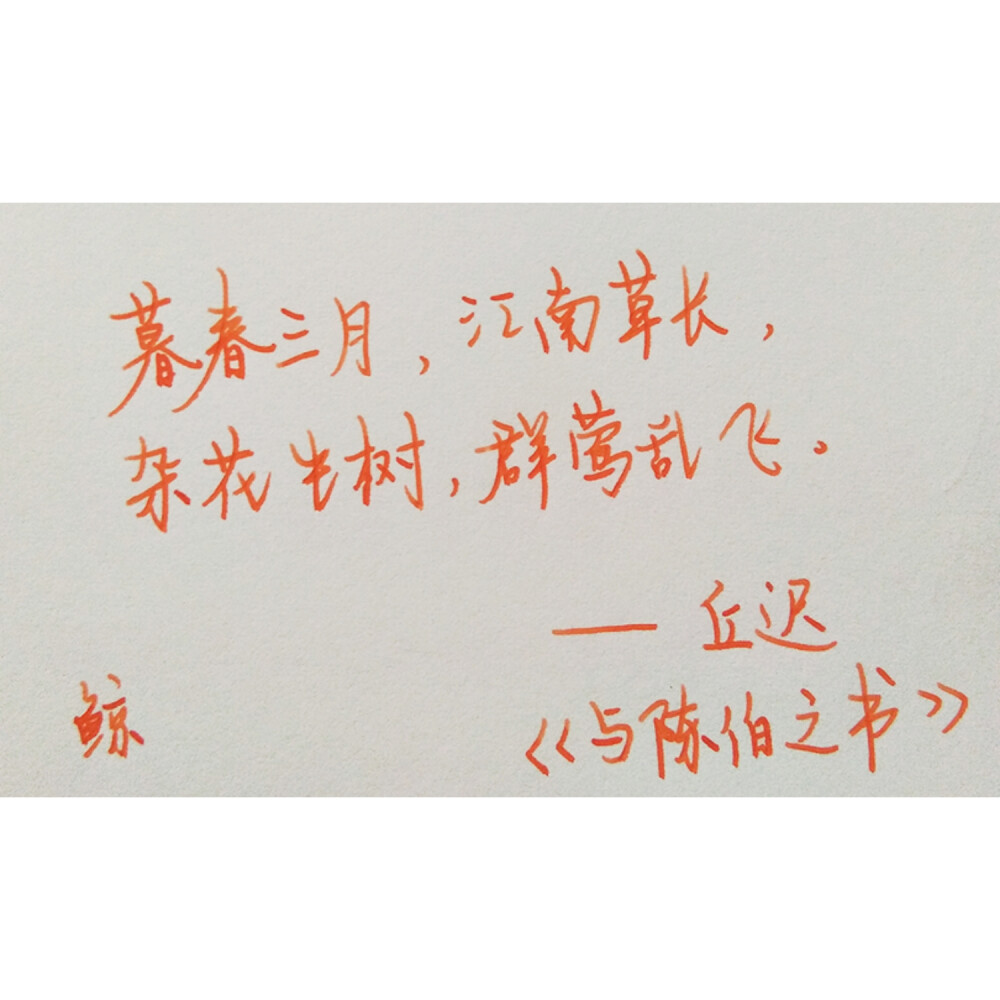 暮春三月，江南草长，
杂花生树，群莺乱飞。
——丘迟
《与陈伯之书》
鲸